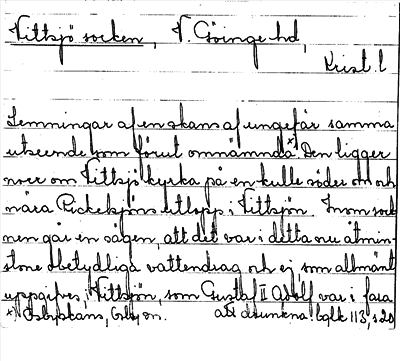 Vittsjö socken, V. Göinge hd,
Krist. l
Lemningar af en skans af ungefär samma
utseende som förut omnämnda.x) Den ligger
norr om Vittsjö kyrka på en kulle söder om och
nära Pickelsjöns utlopp i Vittsjön. Inom sock
nen går en sägen, att det var i detta nu åtmin-
stone obetydliga vattendrag och ej som allmänt
uppgifves, i Vittsjön, som Gustaf II Adolf var i fara
x) Osbyskans, Osby sn. att drunkna. bqlk 113, s 20